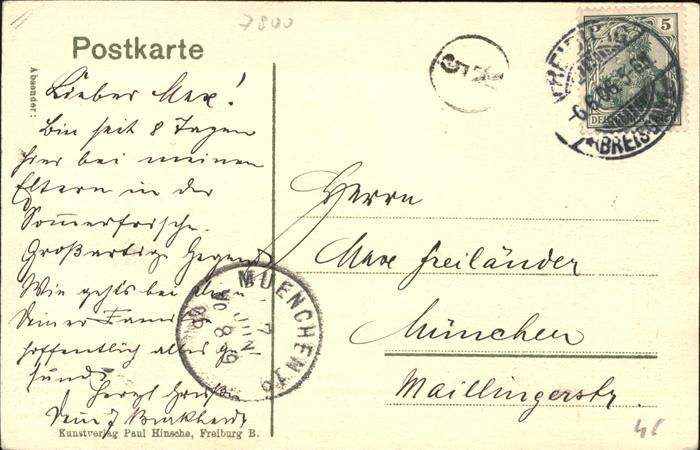 7800
Postkarte
Absender:
Lieber Max!
Bin seit 8 Tagen
hier bei meinen
Eltern in der
Sommerfrische.
Großartige Gegend
Wie gehts bei
Deiner Familie
hoffentlich alles ge-
sund.
Herzl. Grüße
Dein J Burkhardt
Kunstverlag Paul Hinsche, Freiburg B.
5
FREIBURG
6.6.06.5-6N
*(BREISGAU)
MUENCHEN.19
7
JUN
8-9
06
Herrn
Max Freiländer
München
Maillingerstr.
45